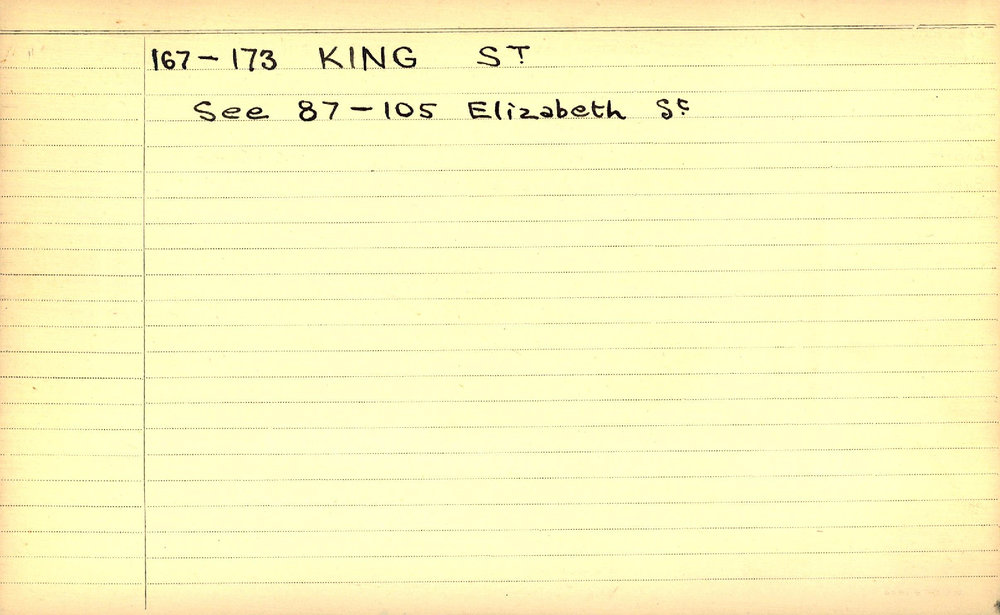 167-173 KING ST
See 87-105 Elizabeth St